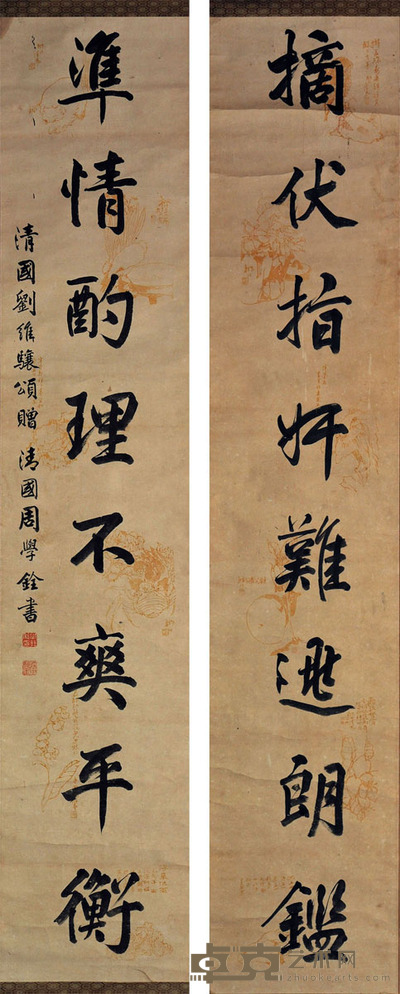 摘伏指奸難逃朗鑑
準情酌理不爽平衡
清國劉維驤頌贈 清國周學銓書
卓克艺术网
zhuokearts.com